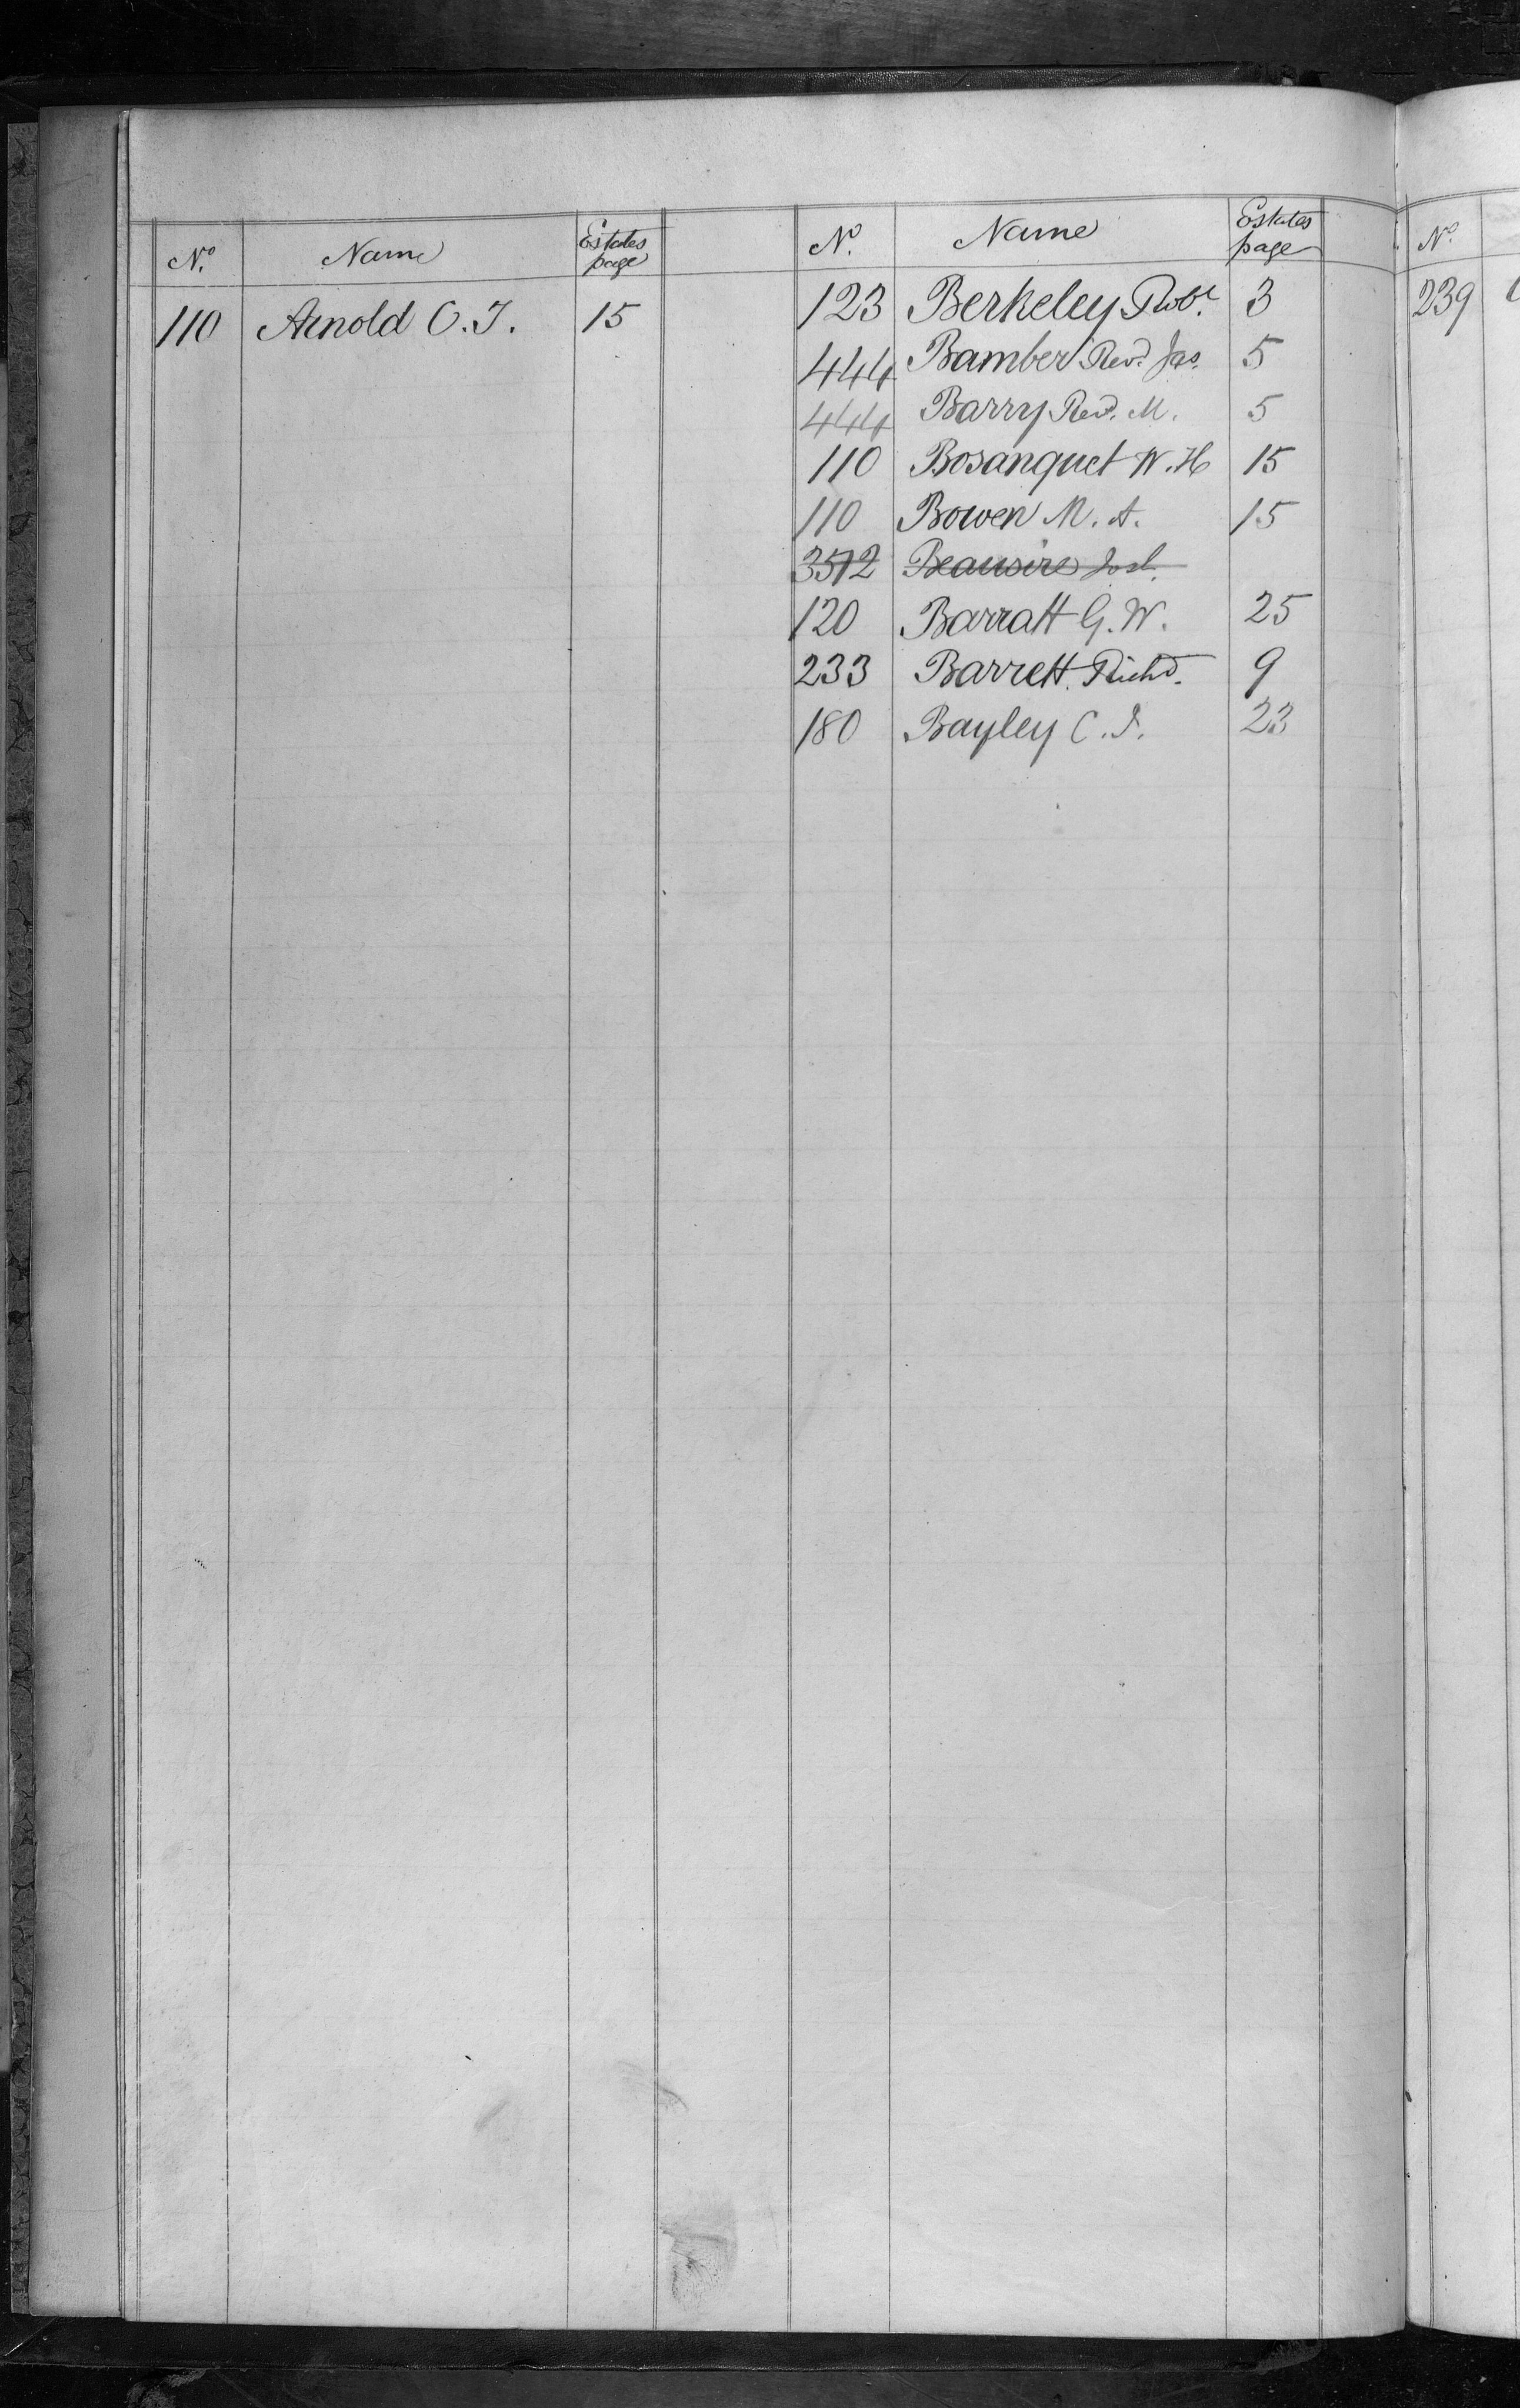 No. Name Estates page
110 Arnold C. J. 15
No. Name Estates page
123 Berkeley Robt. 3
444 Bamber Revd. Jas. 5
444 Barry Revd. M. 5
110 Bosanquet W. H 15
110 Bowen M. A. 15
3512 Beausire Josh.
120 Barratt G. W. 25
233 Barrett Richd. 9
180 Bayley C. J. 23
No.
239